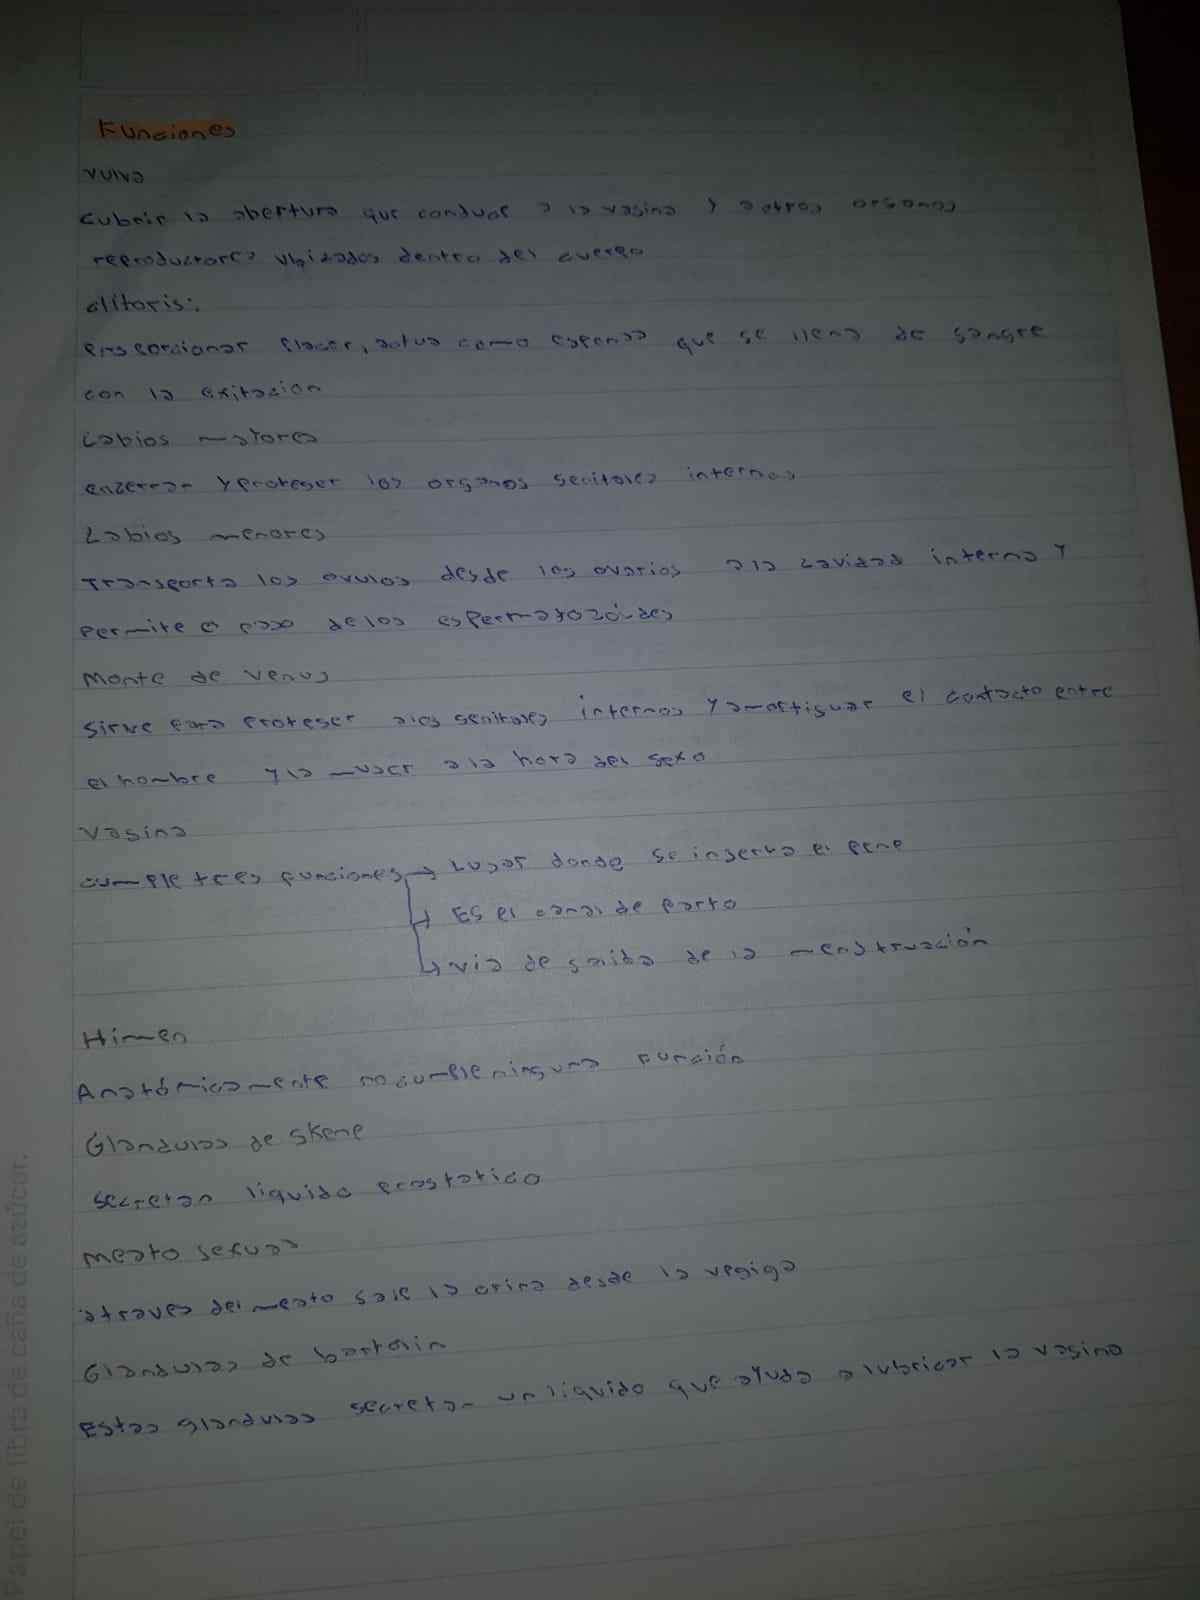 Funciones
vulva
cubrir la abertura que conduce a la vagina y a otros organos
reproductores ubizados dentro del cuerpo
clitoris:
proporcionar placer, actua como esponja que se llena de sangre
con la exitacion
Labios mayores
enzerrar y proteger los organos genitores internos
Labios menores
Transporta los ovulos desde los ovarios a la cavidad interna y
permite el paso de los espermatozóides
Monte de venus
sirve para proteger a los genitores internos y amortiguar el contacto entre
el hombre y la mujer a la hora del sexo
Vagina
cumple tres funciones → Lugar donde se inserta el pene
→ Es el canal de parto
→ via de salida de la menstruación
Himen
Anatómicamente no cumple ninguna función
Glandulas de skene
secretan liquido prostatico
Meato sexual
atraves del meato sale la orina desde la vegiga
Glandulas de bartolin
Estas glandulas secretan un liquido que ayuda a lubricar la vagina
Papel de fibra de caña de azúcar.